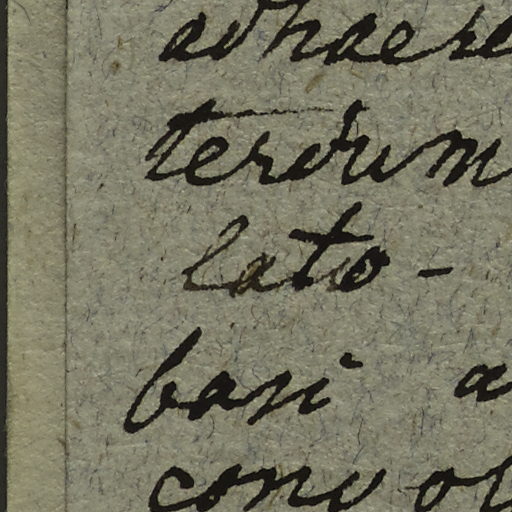 adhaere
terdum
lato-
basi a
convol